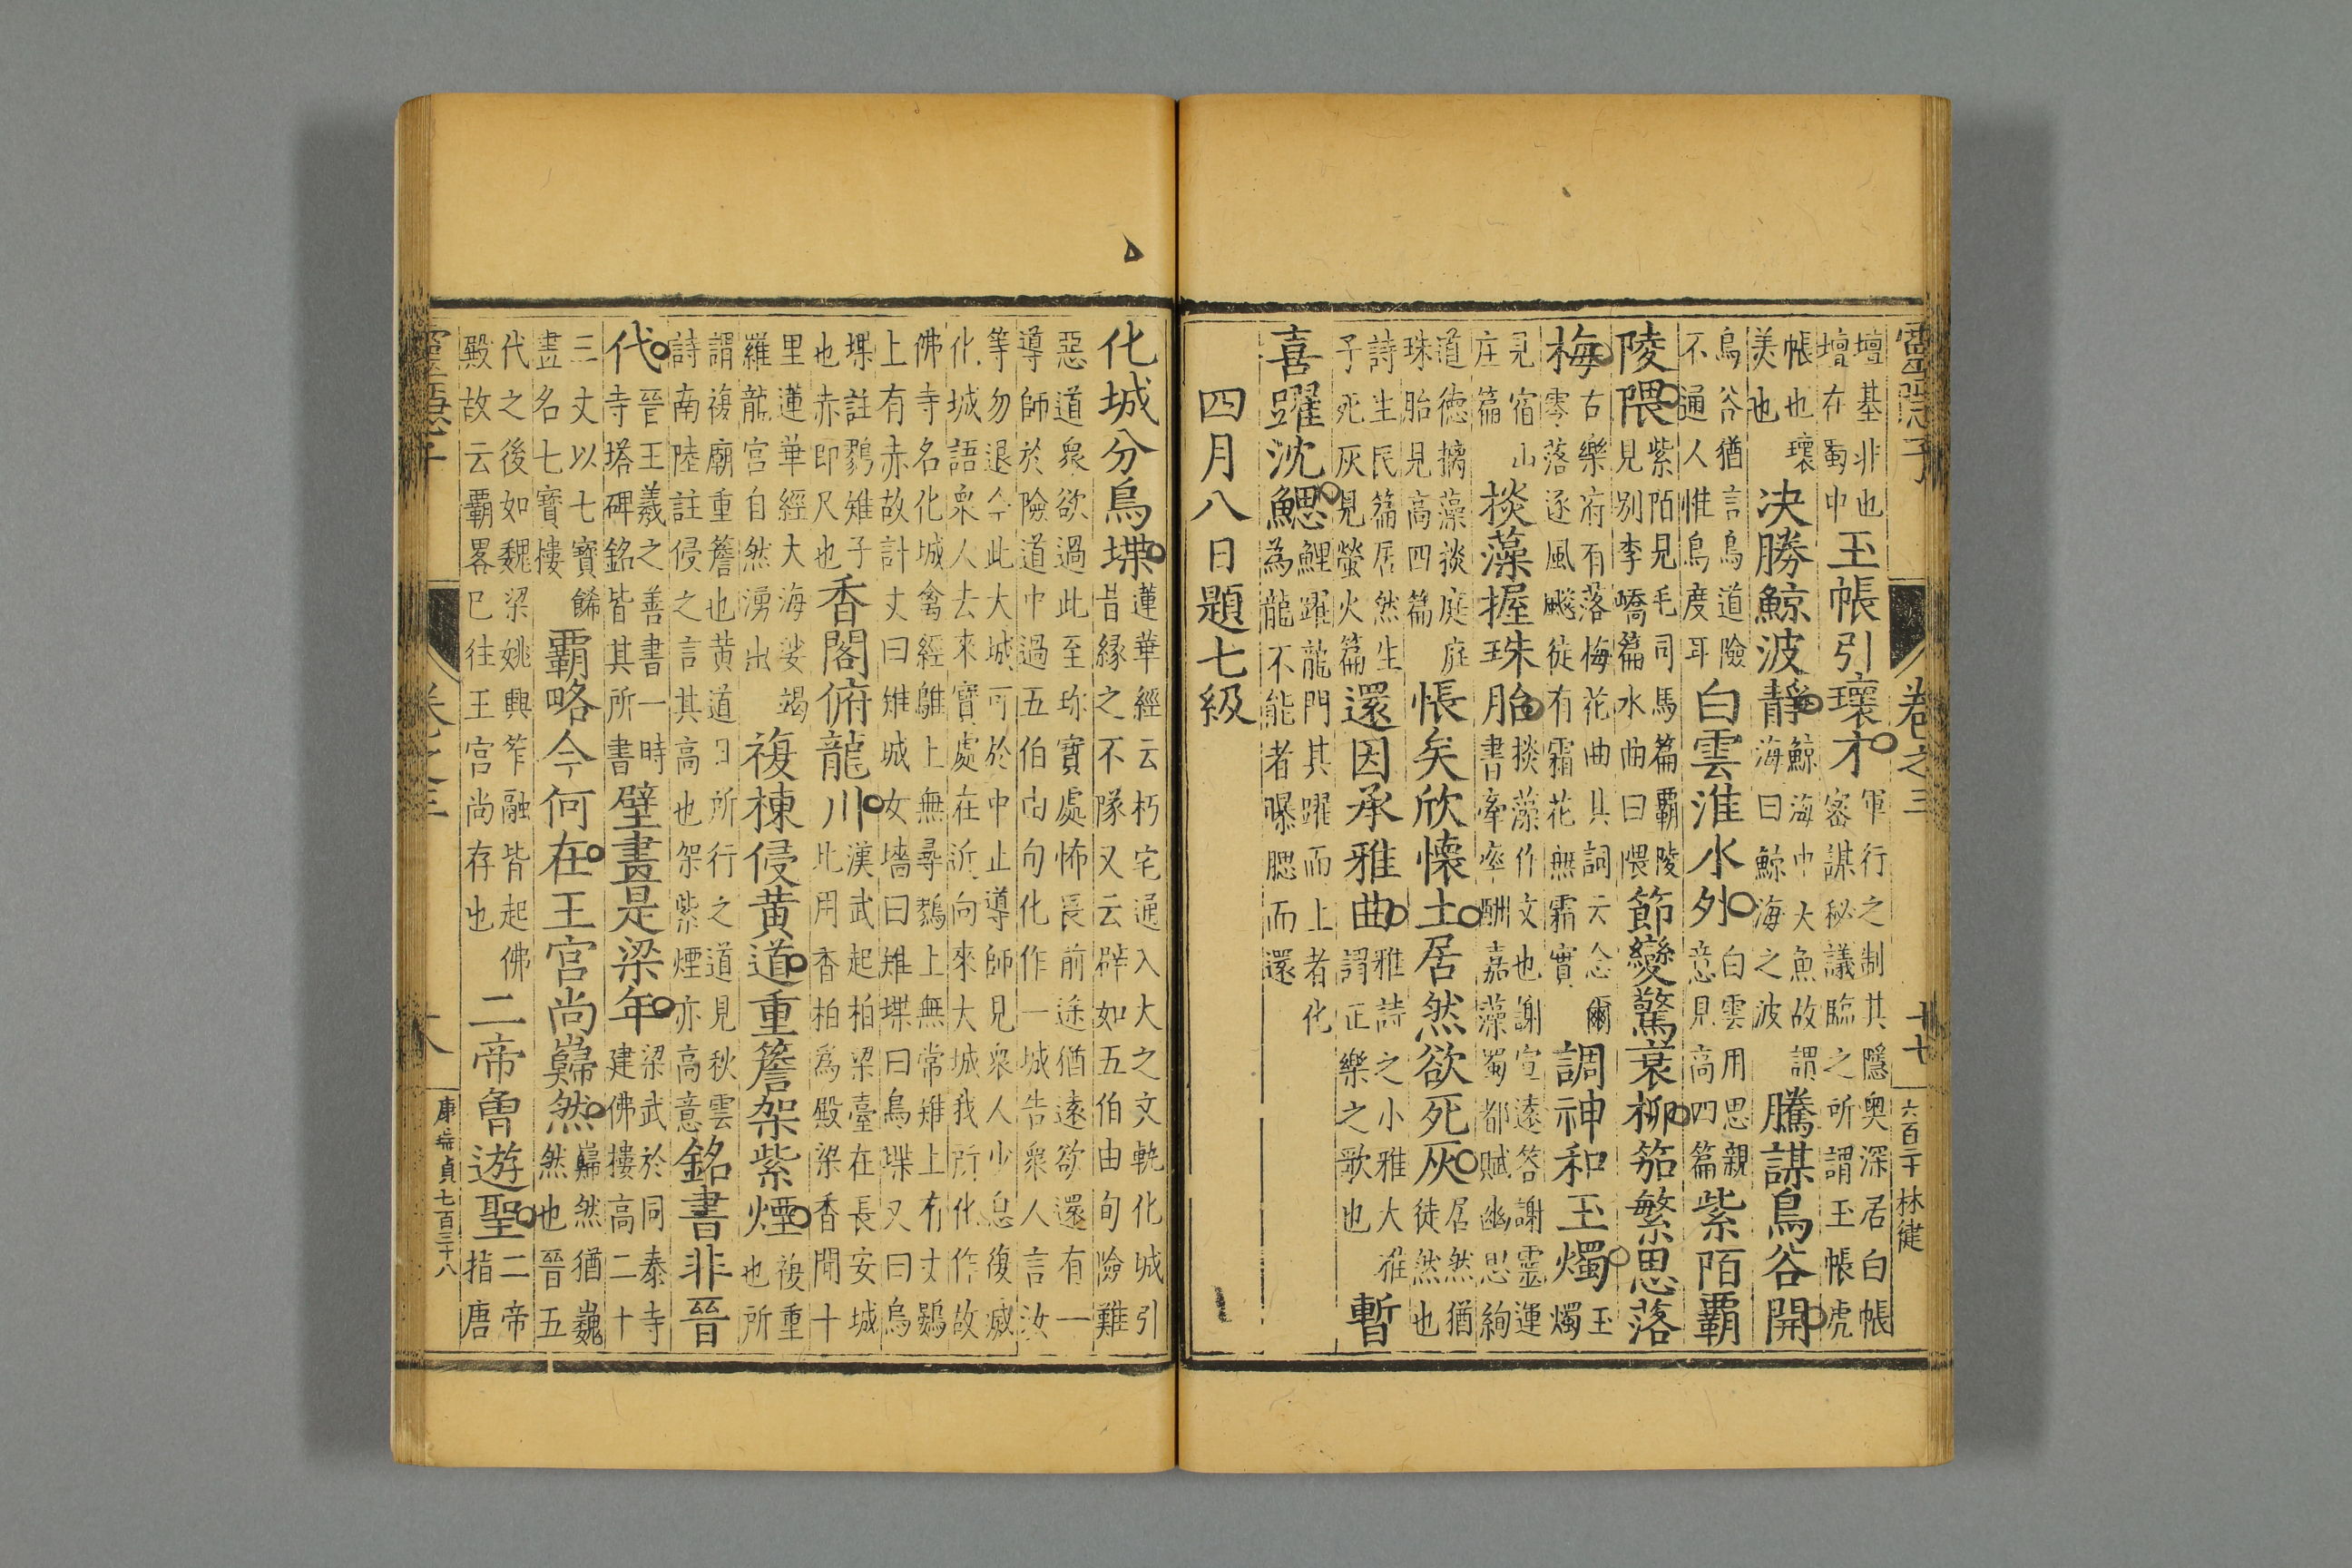 靈隱子 卷之三 十七 六百三十 林徤
壇基非也
壇在蜀中
玉帳引瓌才
軍行之制其隱奥深居白帳
密謀秘議臨之所謂玉帳虎
帳也瓌
美也
决勝鯨波靜
鯨海中大魚故謂
海曰鯨海之波
騰謀鳥谷開
鳥谷猶言鳥道險
不通人惟鳥度耳
白雲淮水外
白雲用思親
意見高四篇
紫陌覇
陵隈
紫陌見毛司馬篇覇陵
見別李嶠篇水曲曰隈
節變驚衰柳笳繁思落
梅
古樂府有落梅花曲具詞云念爾
零落逐風飈徒有霜花無霜實
調神和玉燭
玉
燭
見宿山
庄篇
掞藻握珠胎
掞藻作文也謝宣遠答謝靈運
書牽率酬嘉藻蜀都賦幽思絢
道德摛藻掞庭庭
珠胎見高四篇
悵矣欣懷土居然欲死灰
居然猶
徒然也
詩生民篇居然生
子死灰見螢火篇
還因承雅曲
雅詩之小雅大雅
謂正樂之歌也
暫
喜躍沈鰓
鯉躍龍門其躍而上者化
為龍不能者曝腮而還
四月八日題七級
化城分鳥堞
蓮華經云朽宅通入大之文軌化城引
昔縁之不隊又云辟如五伯由旬險難
惡道衆欲過此至珎寶處怖畏前途猶遠欲還有一
導師於險道中過五伯由旬化作一城告衆人言汝
等勿退今此大城可於中止導師見衆人少息復㓕
化城語衆人去來寶處在近向來大城我所化作故
佛寺名化城禽經鵻上無尋鷚上無常雉上有丈鷃
上有赤故計丈曰雉城女墻曰雉堞曰鳥堞又曰烏
堞註鷚雉子
也赤即尺也
香閣俯龍川
漢武起柏梁臺在長安城
比用香柏為殿梁香聞十
里蓮華經大海娑竭
羅龍宮自然湧出
複棟侵黄道重簷架紫煙
複重
也所
謂複廟重簷也黄道日所行之道見秋雲
詩南陸註侵之言其高也架紫煙亦高意
銘書非晉
代
晉王羲之善書一時
寺塔碑銘皆其所書
壁畫是梁年
梁武於同泰寺
建佛樓高二十
三丈以七寶餙
盡名七寶樓
覇略今何在王宮尚巋然
巋然猶巍
然也晉五
代之後如魏梁姚興笮融皆起佛
殿故云覇畧已往王宮尚存也
二帝曾遊聖
二帝
指唐
靈隱子 卷之三 十八 貞七百三十八